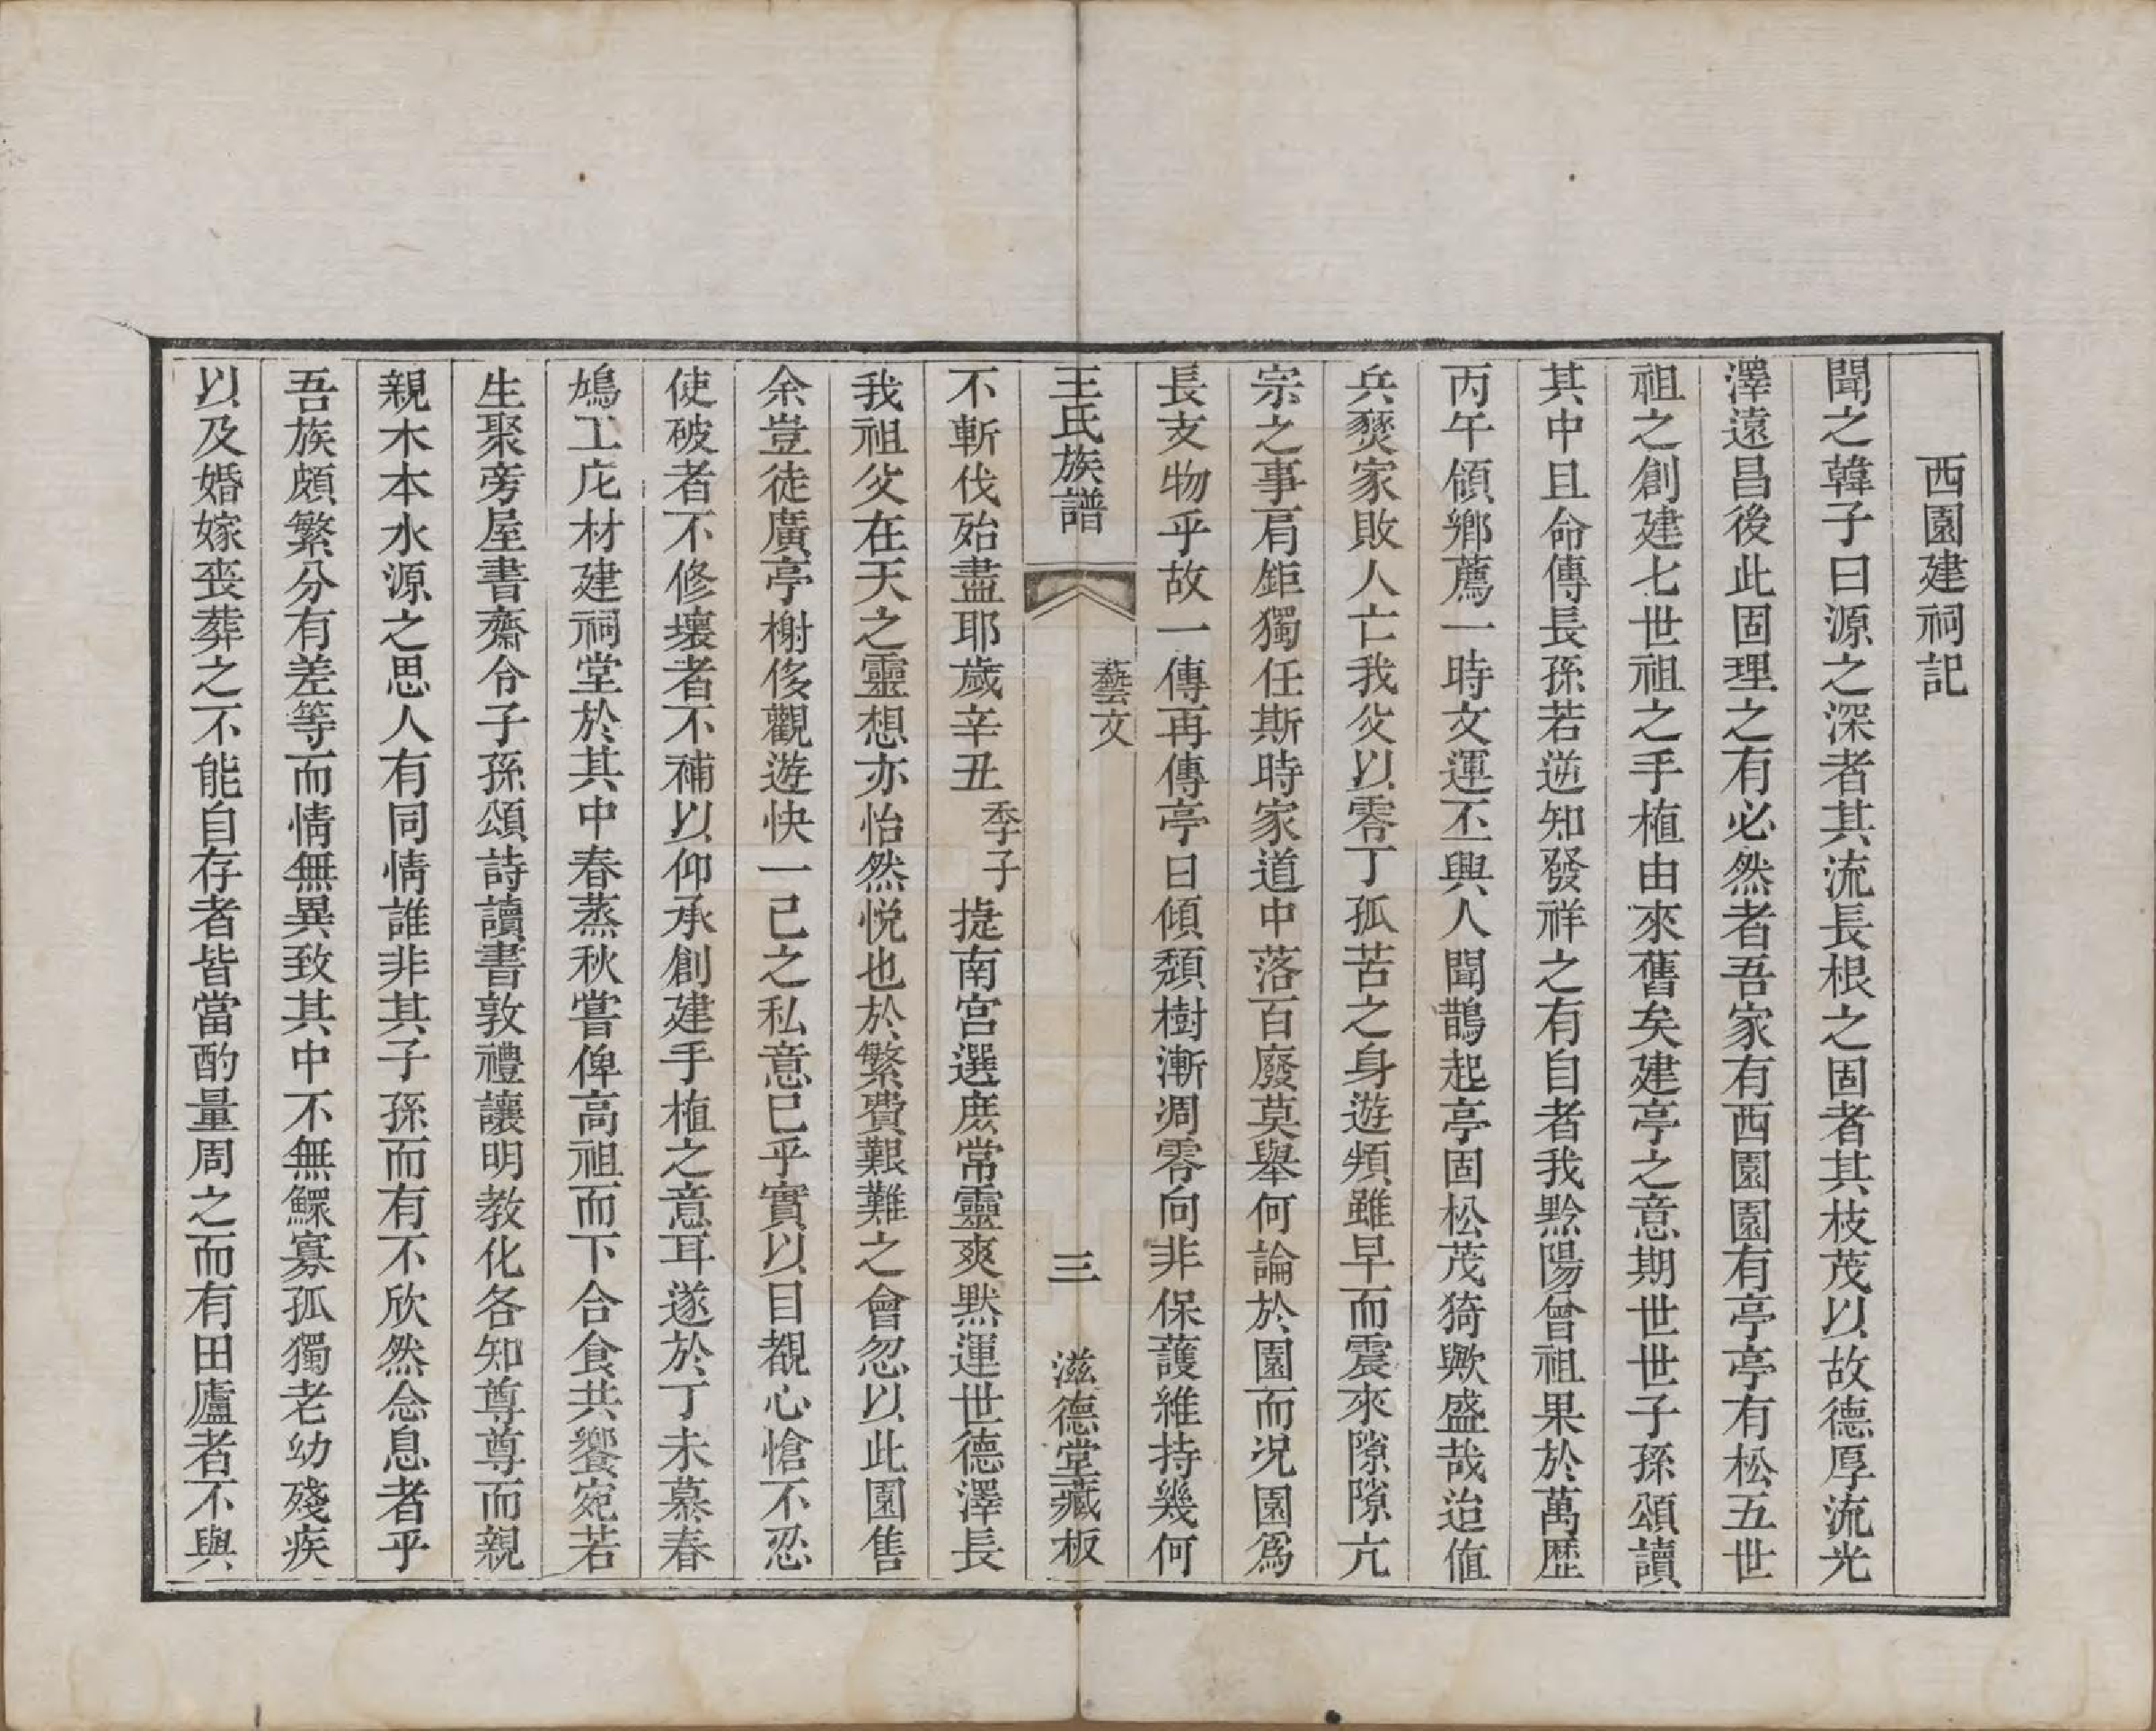 西園建祠記
聞之韓子曰源之深者其流長根之固者其枝茂以故德厚流光
澤遠昌後此固理之有必然者吾家有西園園有亭亭有松五世
祖之創建七世祖之手植由來舊矣建亭之意期世世子孫頌讀
其中且命傳長孫若逆知發祥之有自者我黔陽曾祖果於萬歷
丙午領鄉薦一時文運丕興人聞鵲起亭固松茂猗歟盛哉迨值
兵燹家敗人亡我父以零丁孤苦之身遊頖雖早而震來隙隙亢
宗之事肩鉅獨任斯時家道中落百廢莫舉何論於園而况園爲
長支物乎故一傳再傳亭日傾頽樹漸凋零向非保護維持幾何
王氏族譜 藝文 三 滋德堂藏板
不斬伐殆盡耶歲辛丑季子捷南宮選庶常靈爽默運世德澤長
我祖父在天之靈想亦怡然悦也於繁費艱難之會忽以此園售
余豈徒廣亭榭侈觀遊快一己之私意已乎實以目覩心愴不忍
使破者不修壞者不補以仰承創建手植之意耳遂於丁未慕春
鳩工庀材建祠堂於其中春蒸秋嘗俾高祖而下合食共饗宛若
生聚旁屋書齋令子孫頌詩讀書敦禮讓明教化各知尊尊而親
親木本水源之思人有同情誰非其子孫而有不欣然念息者乎
吾族頗繁分有差等而情無異致其中不無鰥寡孤獨老幼殘疾
以及婚嫁丧葬之不能自存者皆當酌量周之而有田廬者不與